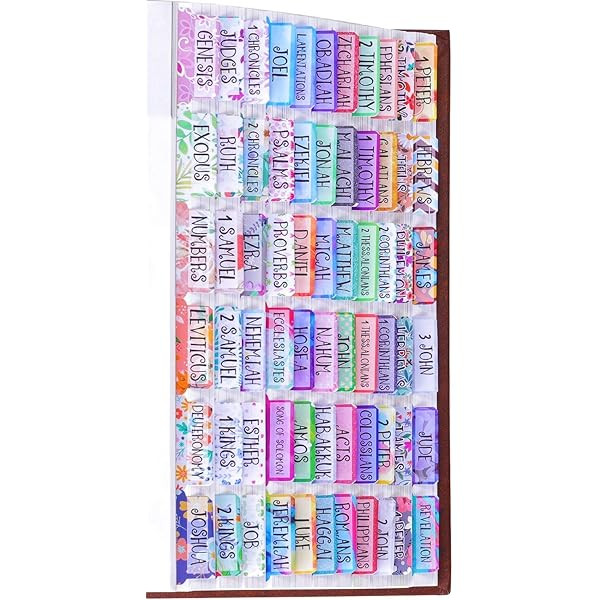 GENESIS
JUDGES
1 CHRONICLES
JOEL
LAMENTATIONS
OBADIAH
ZECHARIAH
2 TIMOTHY
EPHESIANS
2 TIMOTHY
1 PETER
EXODUS
RUTH
2 CHRONICLES
PSALMS
EZEKIEL
JONAH
MALACHI
1 TIMOTHY
GALATIANS
HEBREWS
NUMBERS
1 SAMUEL
EZRA
PROVERBS
DANIEL
MICAH
MATTHEW
2 THESSALONIANS
2 CORINTHIANS
PHILEMON
JAMES
LEVITICUS
2 SAMUEL
NEHEMIAH
ECCLESIASTES
HOSEA
NAHUM
JOHN
1 THESSALONIANS
1 CORINTHIANS
HEBREWS
3 JOHN
DEUTERONOMY
1 KINGS
ESTHER
SONG OF SOLOMON
AMOS
HABAKKUK
ACTS
COLOSSIANS
2 PETER
JAMES
JUDE
JOSHUA
2 KINGS
JOB
JEREMIAH
LUKE
HAGGAI
ROMANS
PHILIPPIANS
2 JOHN
1 PETER
REVELATION